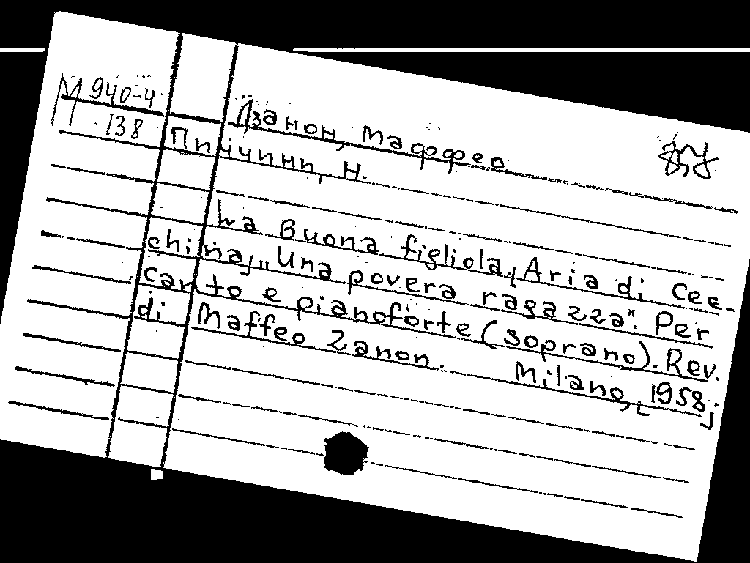 М 940-4
138
Дзанон, Маффео
Пиччини, Н.
La Buona figliola, Aria di Cec-
china, „Una povera ragazza". Per
canto e pianoforte (soprano). Rev.
di Maffeo Zanon. Milano, [1958]